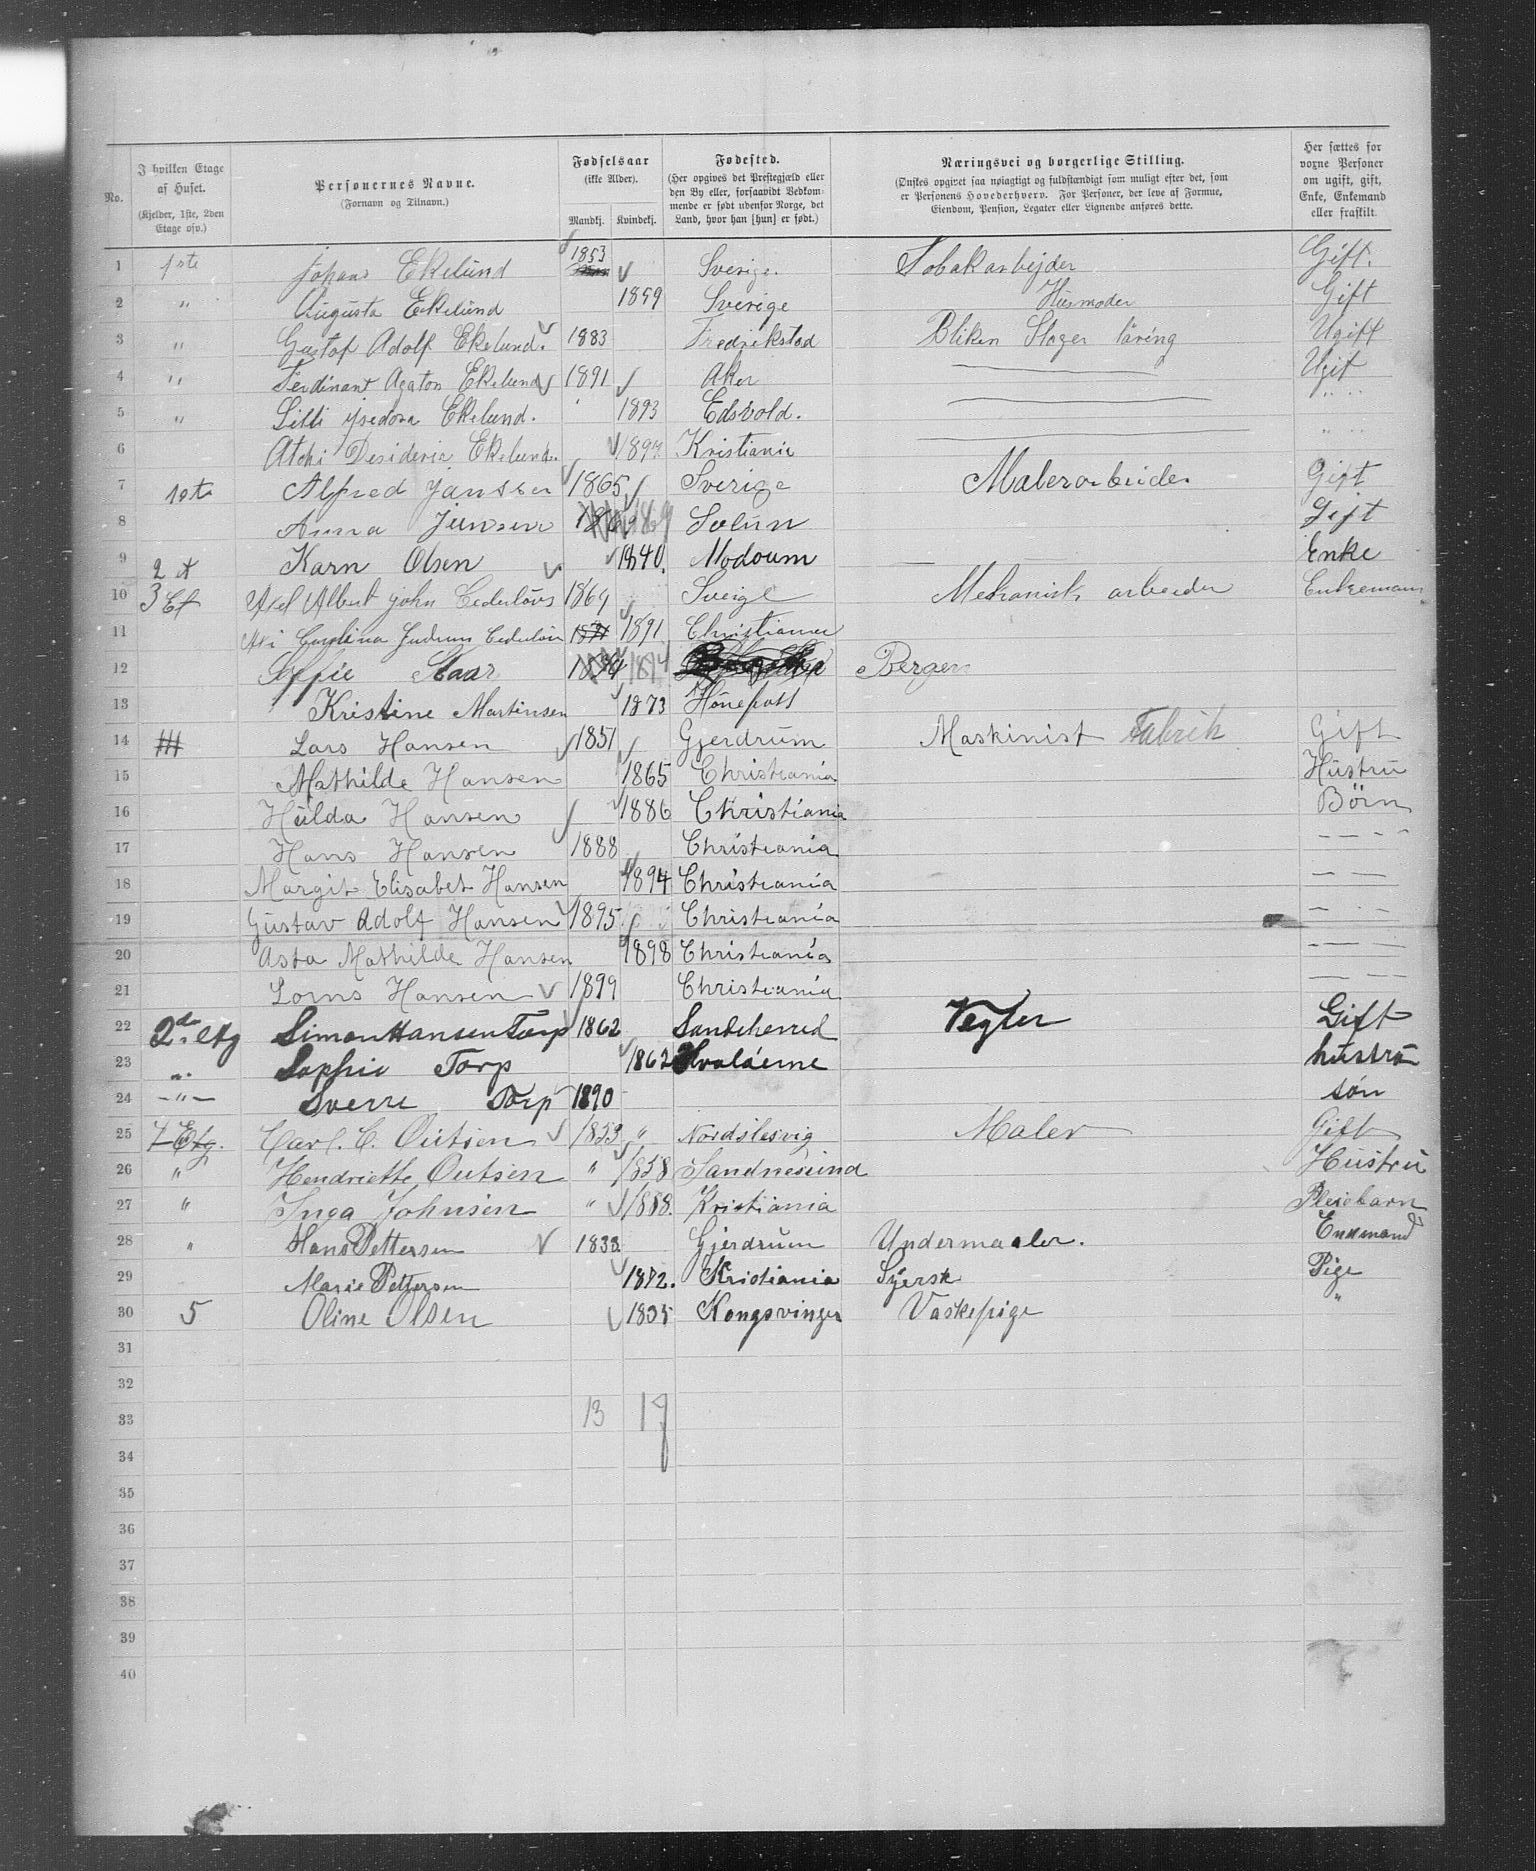 No.
I hvilken Etage af Huset. (Kjelder, 1ste, 2den Etage osv.)
Personernes Navne. (Fornavn og Tilnavn.)
Fødselsaar (ikke Alder). Mandkj. Kvindekj.
Fødested. (Her opgives det Prestegjæld eller den By eller, forsaavidt Vedkommende er født udenfor Norge, det Land, hvor han [hun] er født.)
Næringsvei og borgerlige Stilling. (Ønskes opgivet saa nøiagtigt og fuldstændigt som muligt efter det, som er Personens Hovederhverv. For Personer, der leve af Formue, Eiendom, Pension, Legater eller Lignende anføres dette.
Her sættes for voxne Personer om ugift, gift, Enke, Enkemand eller fraskilt.
1 1ste Johan Ekelund 1853 Sverige. Tobakarbejder Gift.
2 " Augusta Ekelund 1859 Sverige Husmoder Gift
3 " Gustof Adolf Ekelund. 1883 Fredrikstad Bliken Slager läring Ugift
4 " Ferdinant Agaton Ekelund 1891 Aker Ugit
5 " Lilli Isedora Ekelund. 1893 Edsvold. " "
6 Desideria Ekelund. 1897 Kristiania " "
7 1ste Alfred Jansen 1865 Sverige Malerarbeider Gift
8 Anna Jensen 1869 Solun Gift
9 2 et Karn Olsen 1840. Modoum Enke
10 3 Et Axel Albert John Cederlövs 1869 Sveige Mekanisk arbeider Enkemann
11 Carolina Gudrun Cederlöv 1891 Christiania
12 Soffie Staar 1874 Bergen
13 Kristine Martinsen 1873 Hönefoss
14 III Lars Hansen 1851 Gjerdrum Maskinist Fabrik Gift
15 Mathilde Hansen 1865 Christiania Hustru
16 Hulda Hansen 1886 Christiania Börn
17 Hans Hansen 1888 Christiania — — - -
18 Margit Elisabet Hansen 1894 Christiania — —
19 Gustav Adolf Hansen 1895 Christiania - - -
20 Asta Mathilde Hansen 1898 Christiania - — —
21 Hansen 1899 Christiania — — —
22 2de etg Simon Hansen Torp 1862 Sandeherred Vegter Gift
23 " Sophie Torp 1862 Hvaløerne hustru
24 -"- Sverre Torp 1890 søn
25 4 Etg. Carl. C. Outsen 1859 " Nordslesvig Maler Gift
26 " Hendriette Outsen " 1858 Sandnesund Hustru
27 " Inga Johnsen " 1888. Kristiania Pleiebarn
28 " Hans Pettersen 1838 Gjerdrum Undermaaler. Enkmand
29 Marie Pettersen 1872. Kristiania Syersk Pige
30 5 Oline Olsen 1835 Kongsvinger Vaskepige "
31
32
33 13 17
34
35
36
37
38
39
40